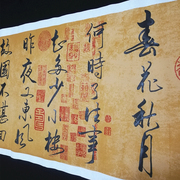 春花秋月
何時了往事
知多少小樓
昨夜又東風
故國不堪回